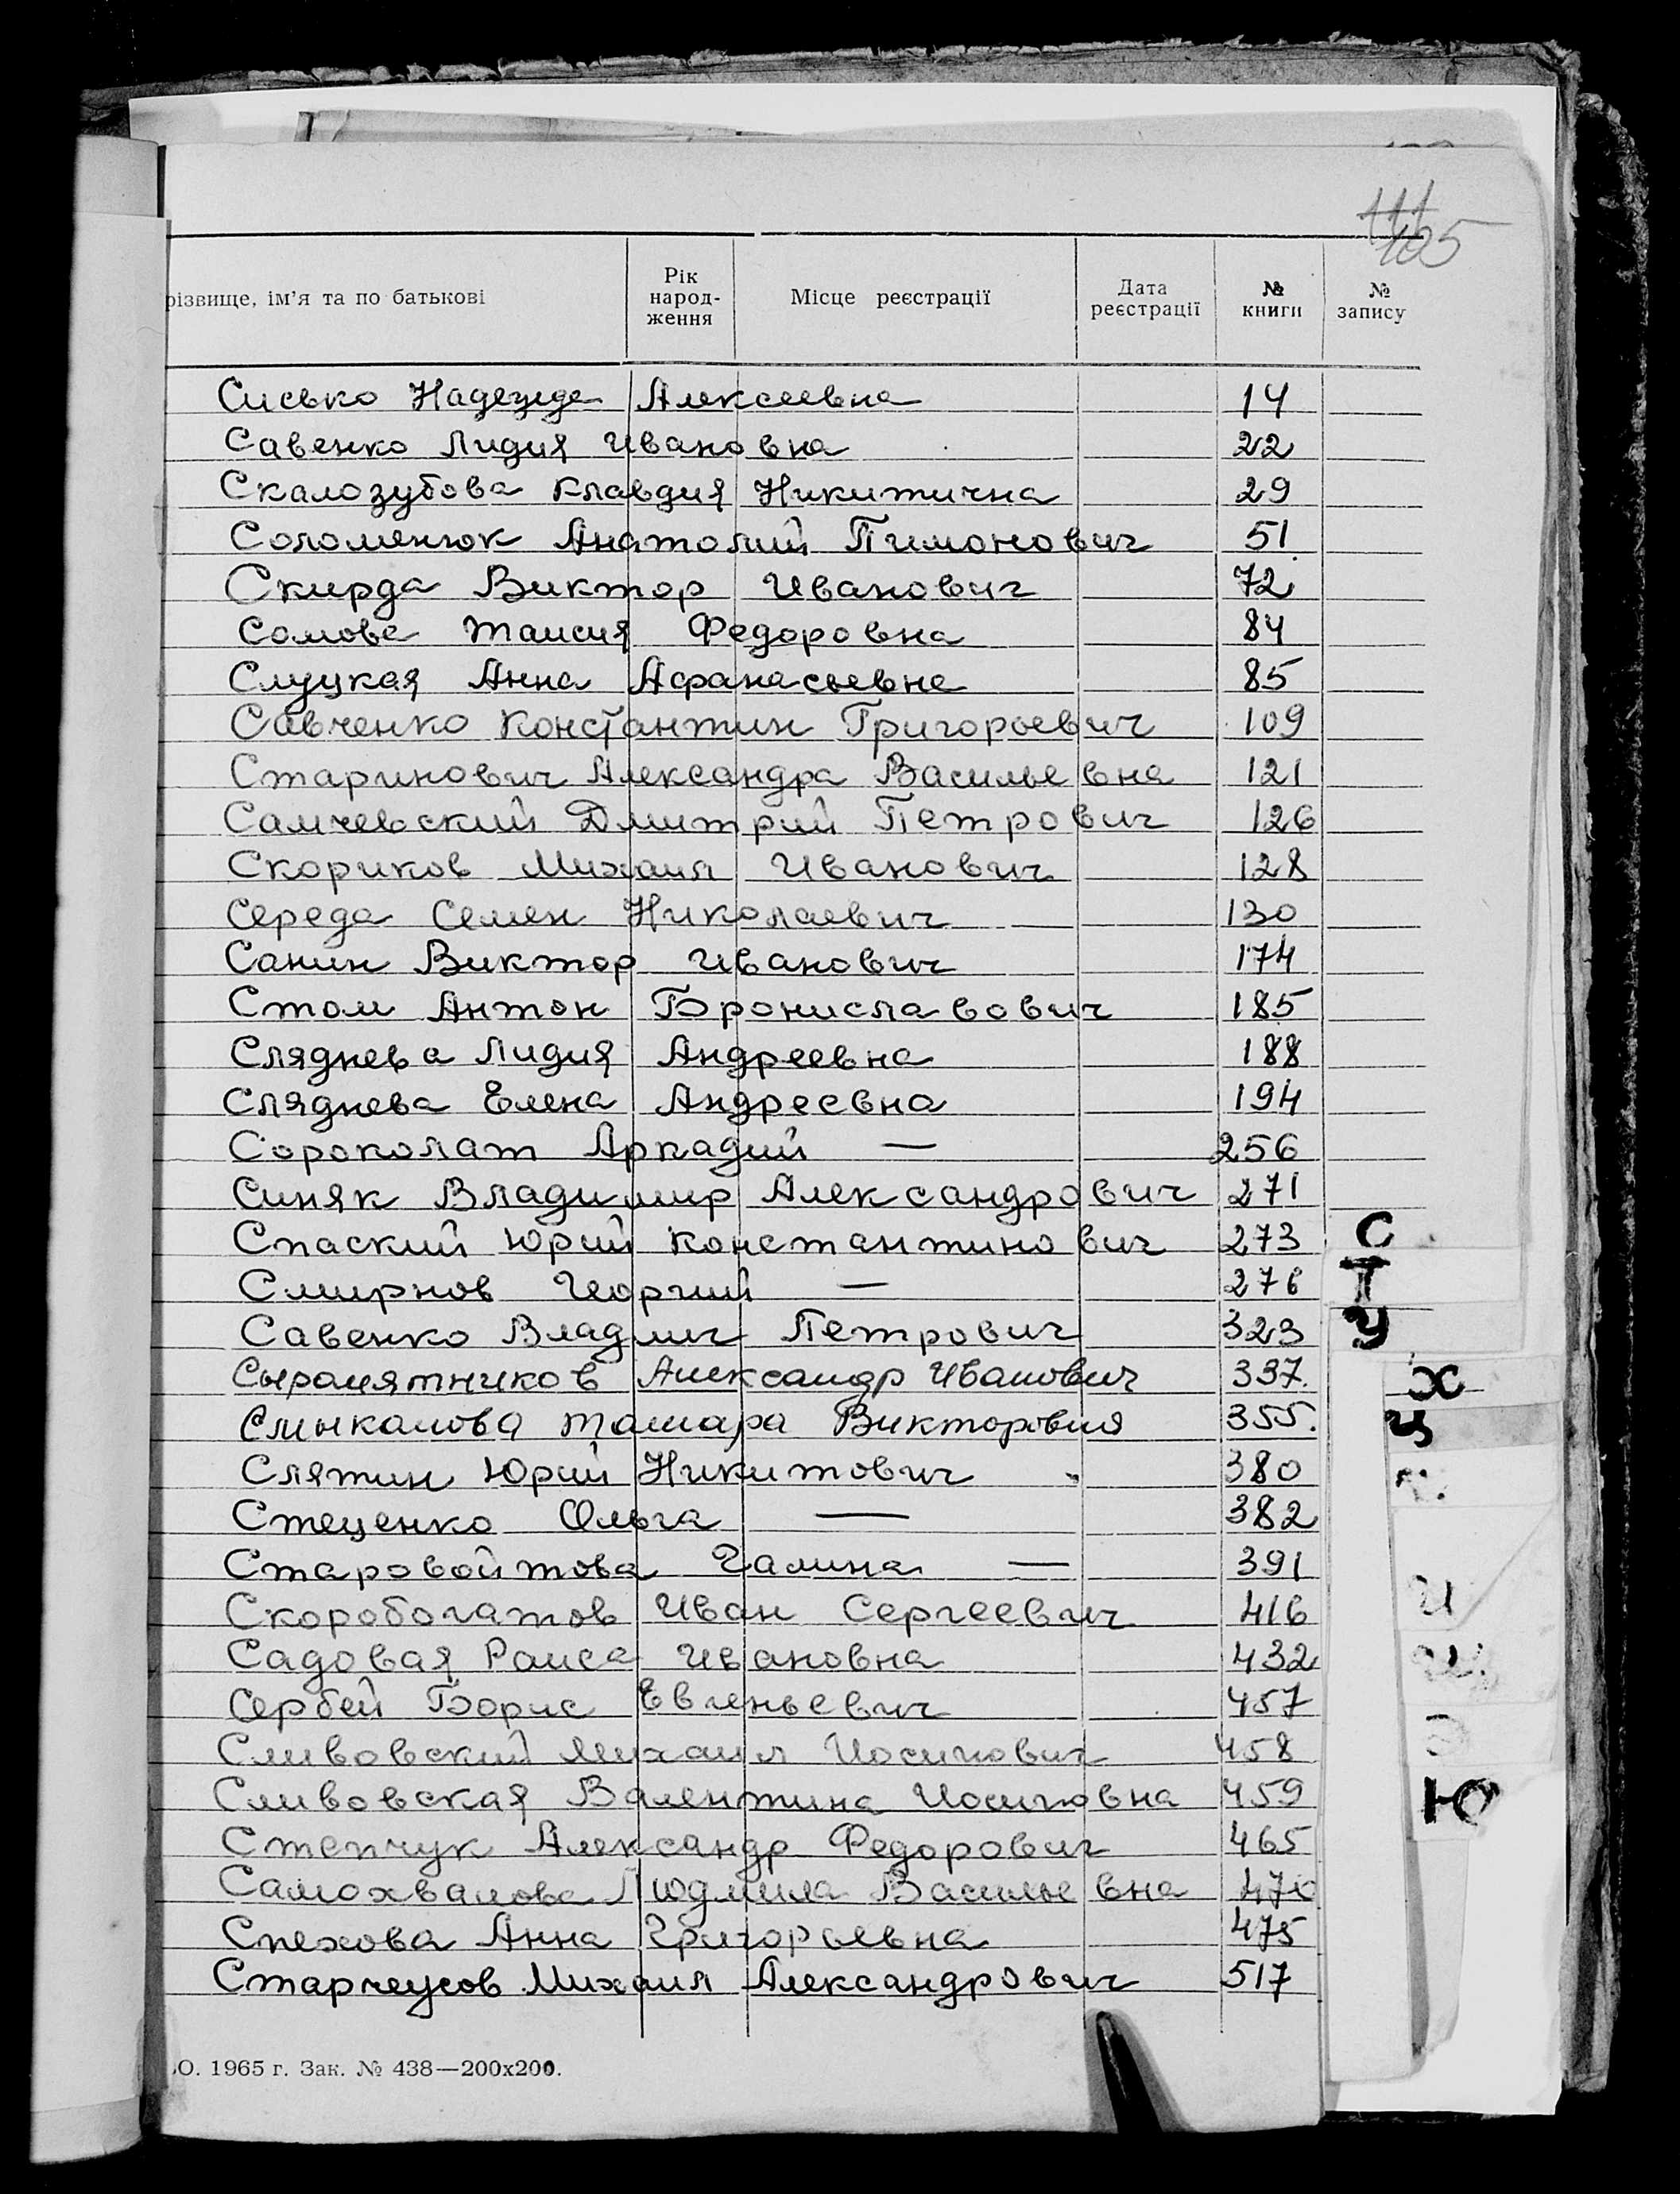 111
105
різвище, ім'я та по батькові
Рік народ-ження
Місце реєстрації
Дата реєстрації
№ книги
№ запису
Сисько Надежда Алексеевна 14
Савенко Лидия Ивановна 22
Скалозубова Клавдия Никитична 29
Соломенюк Анатолий Пимонович 51
Скирда Виктор Иванович 72
Сомова Таисия Федоровна 84
Слуцкая Анна Афанасьевна 85
Савченко Константин Григорьевич 109
Старинович Александра Васильевна 121
Самчевский Дмитрий Петрович 126
Скориков Михаил Иванович 128
Середа Семен Николаевич 130
Санин Виктор Иванович 174
Стом Антон Брониславович 185
Сляднева Лидия Андреевна 188
Сляднева Елена Андреевна 194
Сороколат Аркадий — 256
Синяк Владимир Александрович 271
Спаский Юрий Константинович 273
Смирнов Георгий — 276
Савенко Владлич Петрович 323
Сыромятников Александр Иванович 337.
Слинкалова Тамара Викторовна 355.
Слятин Юрий Никитович 380
Стеценко Ольга — 382
Старовойтова Галина — 391
Скоробогатов Иван Сергеевич 416
Садовая Раиса Ивановна 432
Сербей Борис Евгеньевич 457
Сливовский Михаил Иосипович 458
Сливовская Валентина Иосиповна 459
Степчук Александр Федорович 465
Самохвалова Людмила Васильевна 470
Спехова Анна Григорьевна 475
Старчеусов Михаил Александрович 517
О. 1965 г. Зак. № 438—200х200.
С
Т
У
Х
Ц
Ю